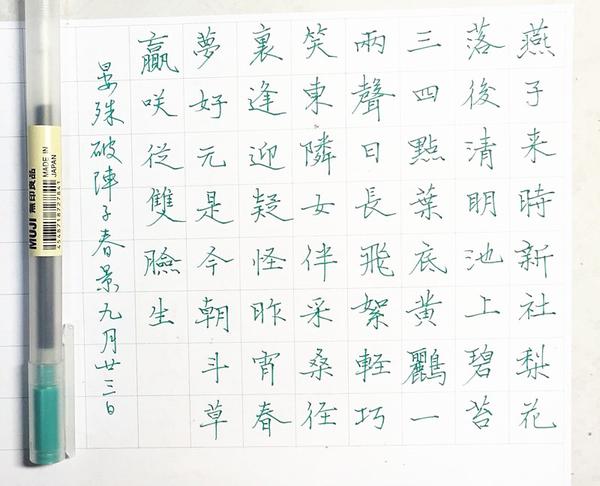 燕子来時新社梨花
落後清明池上碧苔
三四點葉底黃鸝一
兩聲日長飛絮輕巧
笑東隣女伴采桑径
裏逢迎疑怪昨宵春
夢好元是今朝斗草
贏咲從雙臉生
晏殊破陣子春景九月廿三日
MUJI 無印良品
MADE IN
JAPAN
4548718727841